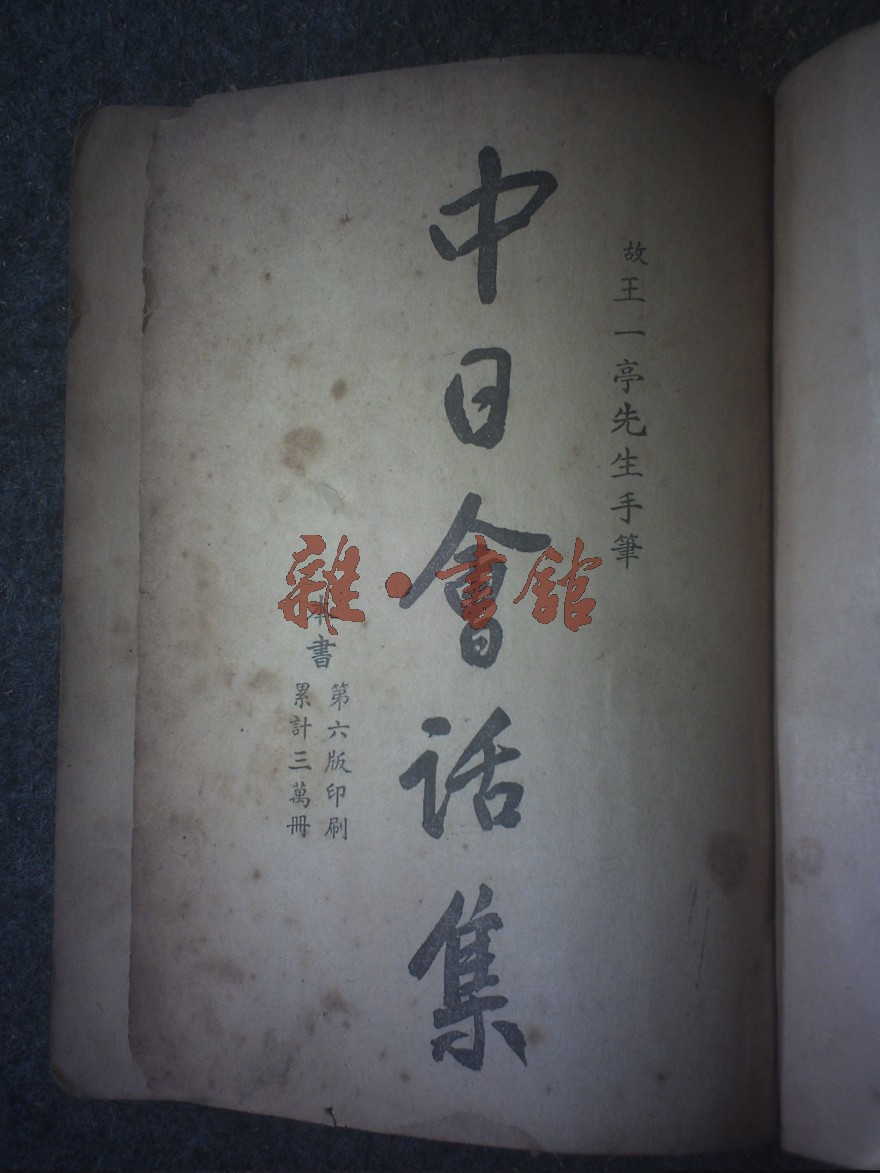 故王一亭先生手筆
中日會话集
本書
第六版印刷
累計三萬冊
雜·書館